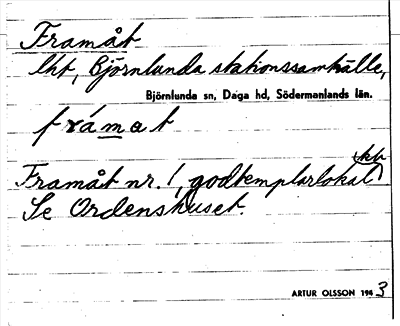 Framåt
lht, Björnlunda stationssamhälle,
Björnlunda sn, Daga hd, Södermanlands län.
frámat
Framåt nr. 1, godtemplarlokal
Se Ordenshuset.
ARTUR OLSSON 1943